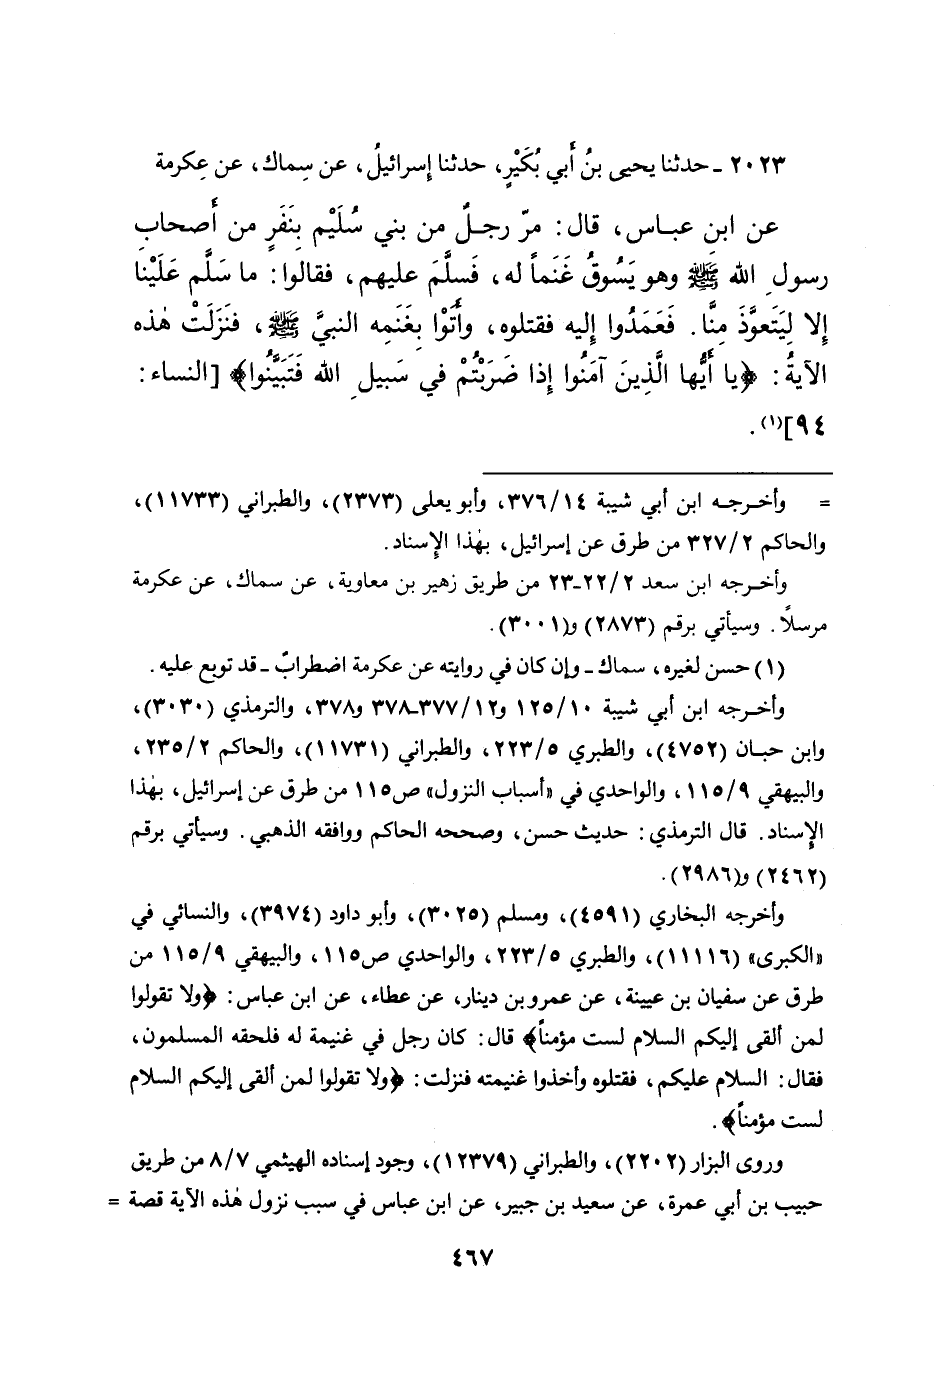 ٢٠٢٣ ـ حدثنا يحيى بنُ أَبي بُكَيْرٍ، حدثنا إِسرائيلُ، عن سِماك، عن عِكرمة
عن ابنِ عبـاس، قال: مرّ رجـلٌ من بني سُلَيْم بِنَفَرٍ من أَصحابِ
رسولِ الله ﷺ وهو يَسُوقُ غَنَماً له، فَسلَّمَ عليهم، فقالوا: ما سَلَّم عَلَيْنا
إلا لِيَتَعوَّذَ مِنَّا. فَعَمَدُوا إليه فقتلوه، وأَتَوْا بِغَنَمِه النبيَّ ﷺ، فنَزَلَتْ هٰذه
الآيةُ: ﴿يا أَيُّها الَّذِينَ آمَنُوا إذا ضَرَبْتُمْ في سَبيلِ الله فَتَبَيَّنُوا﴾ [النساء:
٩٤](١).
= وأخـرجـه ابن أبي شيبة ٣٧٦/١٤، وأبو يعلى (٢٣٧٣)، والطبراني (١١٧٣٣)،
والحاكم ٣٢٧/٢ من طرق عن إسرائيل، بهٰذا الإِسناد.
وأخـرجه ابن سعد ٢٢/٢ـ٢٣ من طريق زهير بن معاوية، عن سماك، عن عكرمة
مرسلاً. وسيأتي برقم (٢٨٧٣) و(٣٠٠١).
(١) حسن لغيره، سماك ـ وإن كان في روايته عن عكرمة اضطرابٌ ـ قد توبع عليه.
وأخـرجه ابن أبي شيبة ١٢٥/١٠ و٣٧٧/١٢ـ٣٧٨ و٣٧٨، والترمذي (٣٠٣٠)،
وابن حبـان (٤٧٥٢)، والطبري ٢٢٣/٥، والطبراني (١١٧٣١)، والحاكم ٢٣٥/٢،
والبيهقي ١١٥/٩، والواحدي في «أسباب النزول» ص١١٥ من طرق عن إسرائيل، بهٰذا
الإِسناد. قال الترمذي: حديث حسن، وصححه الحاكم ووافقه الذهبي. وسيأتي برقم
(٢٤٦٢) و(٢٩٨٦).
وأخرجه البخاري (٤٥٩١)، ومسلم (٣٠٢٥)، وأبو داود (٣٩٧٤)، والنسائي في
«الكبرى» (١١١١٦)، والطبري ٢٢٣/٥، والواحدي ص١١٥، والبيهقي ١١٥/٩ من
طرق عن سفيان بن عيينة، عن عمرو بن دينار، عن عطاء، عن ابن عباس: ﴿ولا تقولوا
لمن ألقى إليكم السلام لست مؤمناً﴾ قال: كان رجل في غنيمة له فلحقه المسلمون،
فقال: السلام عليكم، فقتلوه وأخذوا غنيمته فنزلت: ﴿ولا تقولوا لمن ألقى إليكم السلام
لست مؤمناً﴾.
وروى البزار (٢٢٠٢)، والطبراني (١٢٣٧٩)، وجود إسناده الهيثمي ٨/٧ من طريق
حبيب بن أبي عمرة، عن سعيد بن جبير، عن ابن عباس في سبب نزول هٰذه الآية قصة =
٤٦٧